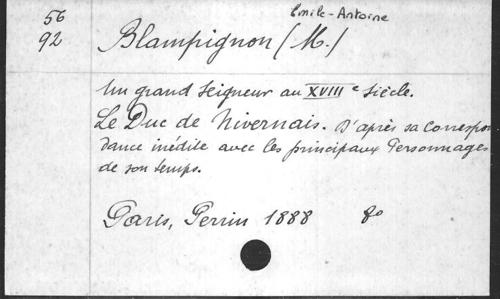 Emile-Antoine
56
92
Blampignon (M.)
Un grand Seigneur au XVIIIe Siècle.
Le Duc de Nivernais. D'après sa Correspon
dance inédite avec les principaux Personnages
de son temps.
Paris, Perrin 1888 8o